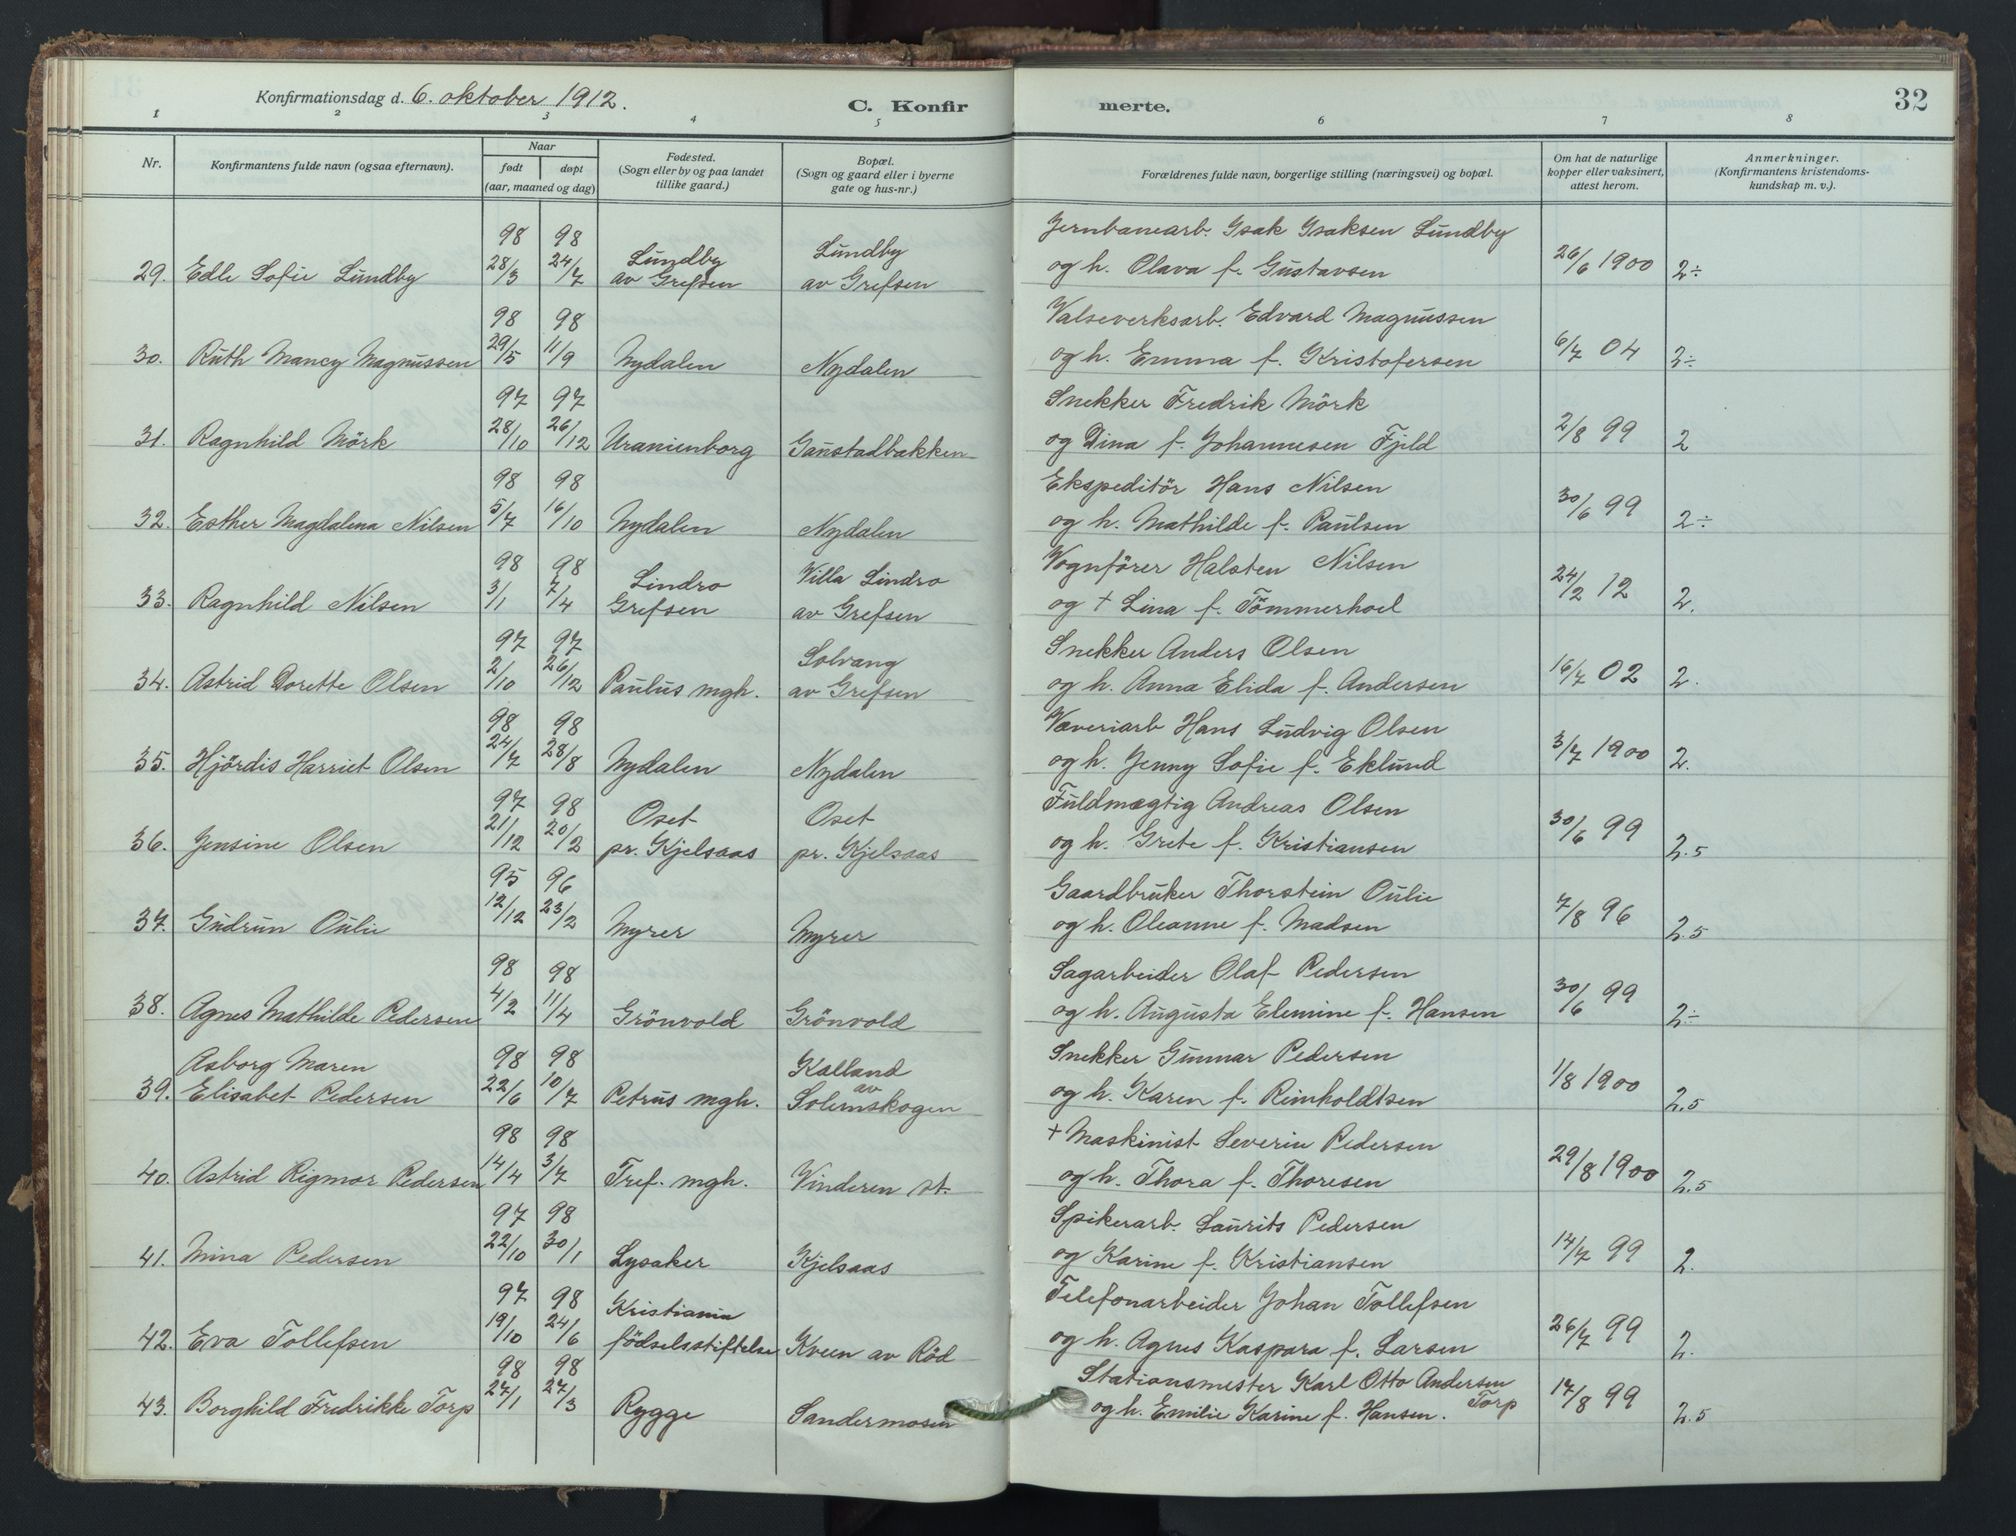 Konfirmationsdag d. 6. oktober 1912.
C. Konfirmerte.
32
1 2 3 4 5 6 7 8
Nr.
Konfirmantens fulde navn (ogsaa efternavn).
Naar
født døpt
(aar, maaned og dag)
Fødested.
(Sogn eller by og paa landet
tillike gaard.)
Bopæl.
(Sogn og gaard eller i byerne
gate og hus-nr.)
Forældrenes fulde navn, borgerlige stilling (næringsvei) og bopæl.
Om hat de naturlige
kopper eller vaksinert,
attest herom.
Anmerkninger.
(Konfirmantens kristendoms-
kundskap m. v.).
98 98 Lundby Lundby Jernbanearb. Isak Isaksen Lundby
29. Edle Sofie Lundby 28/3 24/7 av Grefsen av Grefsen og h. Olava f. Gustavsen 26/6 1900 2÷
98 98 Valseverksarb. Edvard Magnussen
30. Ruth Nancy Magnussen 29/5 11/9 Nydalen Nydalen og h. Emma f. Kristofersen 6/7 04 2÷
97 97 Snekker Fredrik Mörk
31. Ragnhild Mörk 28/10 26/12 Uranienborg Gaustadbakken og Dina f. Johannesen Fjeld 2/8 99 2
98 98 Ekspeditör Hans Nilsen
32. Esther Magdalena Nilsen 5/7 16/10 Nydalen Nydalen og h. Mathilde f. Paulsen 30/6 99 2÷
98 98 Lindro Villa Lindro Vognförer Halsten Nilsen
33. Ragnhild Nilsen 3/1 7/4 Grefsen av Grefsen og + Lina f. Tömmerhoel 24/2 12 2.
97 97 Solvang Snekker Anders Olsen
34. Astrid Dorette Olsen 2/10 26/12 Paulus mgh. av Grefsen og h. Anna Elida f. Andersen 16/7 02 2.
98 98 Væveriarb Hans Ludvig Olsen
35. Hjördis Harriet Olsen 24/7 28/8 Nydalen Nydalen og h. Jenny Sofie f. Eklund 3/7 1900 2.
97 98 Oset Oset Fuldmægtig Andreas Olsen
36. Jensine Olsen 21/12 20/2 pr. Kjelsaas pr. Kjelsaas og h. Grete f. Kristiansen 30/6 99 2.5
95 96 Gaardbruker Thorstein Oulie
37. Gudrun Oulie 12/12 23/2 Myrer Myrer og h. Oleanne f. Madsen 7/8 96 2.5
98 98 Sagarbeider Olaf Pedersen
38. Agnes Mathilde Pedersen 4/2 11/4 Grönvold Grönvold og h. Augusta Elemine f. Hansen 30/6 99 2÷
Asborg Maren 98 98 Kalland av Snekker Gunnar Pedersen
39. Elisabet Pedersen 22/6 10/7 Petrus mgh. Solemskogen og h. Karen f. Rimholdtsen 1/8 1900 2.5
98 98 + Maskinist Severin Pedersen
40. Astrid Rigmor Pedersen 14/4 3/7 Tref. mgh. Vinderen st. og h. Thora f. Thoresen 29/8 1900 2.5
97 98 Spikerarb. Laurits Pedersen
41. Mina Pedersen 22/10 30/1 Lysaker Kjelsaas og Karine f. Kristiansen 14/7 99 2.
97 98 Kristiania Telefonarbeider Johan Tollefsen
42. Eva Tollefsen 19/10 24/6 födselsstiftelse Kveen av Röd og h. Agnes Kaspara f. Larsen 26/7 99 2.
98 98 Stationsmester Karl Otto Andersen Torp
43. Borghild Fredrikke Torp 27/1 27/3 Rygge Sandermosen og h. Emilie Karine f. Hansen. 17/8 99 2.5